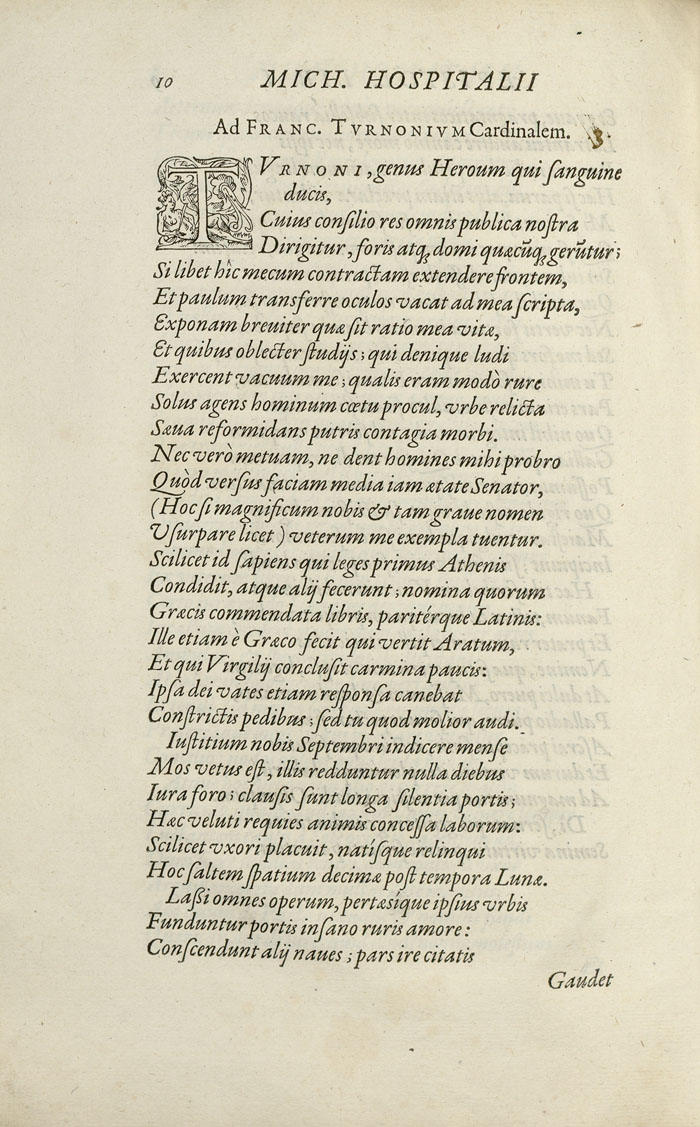 10 MICH. HOSPITALII
Ad FRANC. TVRNONIVM Cardinalem. 3.
TVRNONI, genus Heroum qui ſanguine
ducis,
Cuius conſilio res omnis publica noſtra
Dirigitur, foris atq; domi quæcũq; gerũtur;
Si libet hîc mecum contractam extendere frontem,
Et paulum transferre oculos vacat ad mea ſcripta,
Exponam breuiter quæ ſit ratio mea vitæ,
Et quibus oblecter ſtudijs; qui denique ludi
Exercent vacuum me; qualis eram modò rure
Solus agens hominum cœtu procul, vrbe relicta
Sæua reformidans putris contagia morbi.
Nec verò metuam, ne dent homines mihi probro
Quòd verſus faciam media iam ætate Senator,
(Hoc ſi magnificum nobis & tam graue nomen
Vſurpare licet) veterum me exempla tuentur.
Scilicet id ſapiens qui leges primus Athenis
Condidit, atque alij fecerunt; nomina quorum
Græcis commendata libris, paritérque Latinis:
Ille etiam è Græco fecit qui vertit Aratum,
Et qui Virgilij concluſit carmina paucis:
Ipſa dei vates etiam reſponſa canebat
Conſtrictis pedibus; ſed tu quod molior audi.
Iuſtitium nobis Septembri indicere menſe
Mos vetus eſt, illis redduntur nulla diebus
Iura foro; clauſis ſunt longa ſilentia portis;
Hæc veluti requies animis conceſſa laborum:
Scilicet vxori placuit, natíſque relinqui
Hoc ſaltem ſpatium decimæ poſt tempora Lunæ.
Laßi omnes operum, pertæsíque ipſius vrbis
Funduntur portis inſano ruris amore:
Conſcendunt alij naues; pars ire citatis
Gaudet